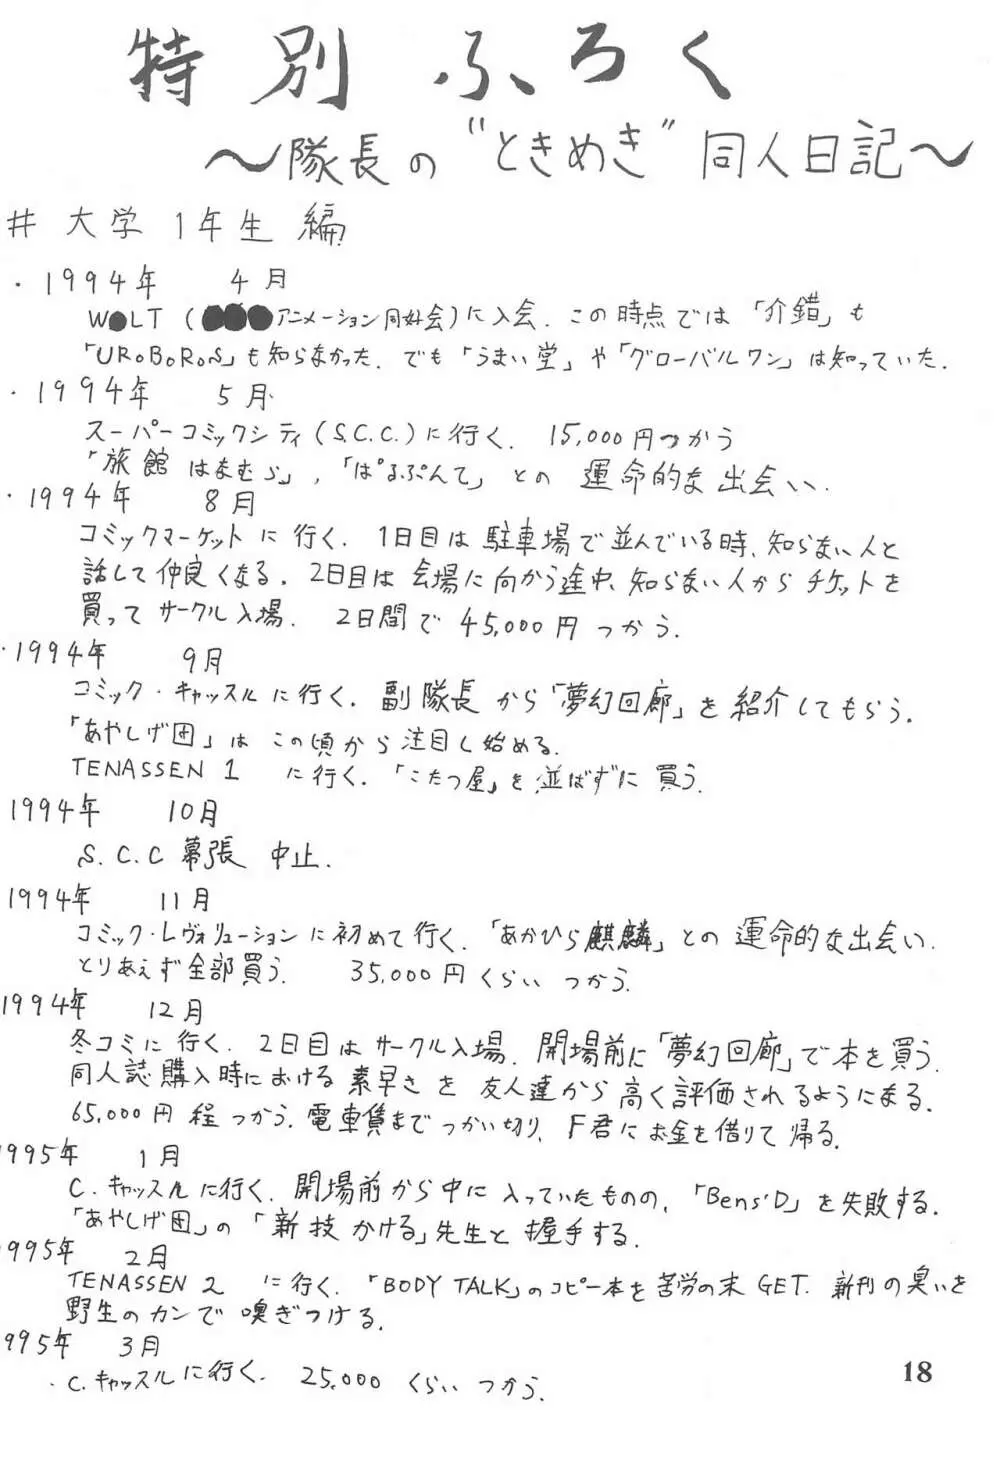 特別ふろく
～隊長の“ときめき”同人日記～
# 大学1年生編
・1994年 4月
W●LT(●●●アニメーション同好会)に入会. この時点では「介錯」も
「UROBOROS」も知らなかった. でも「うまい堂」や「グローバルワン」は知っていた.
・1994年 5月
スーパーコミックシティ(S.C.C.)に行く. 15,000円つかう
「旅館はなむら」,「ぱるぷんて」との運命的な出会い.
・1994年 8月
コミックマーケットに行く. 1日目は駐車場で並んでいる時、知らない人と
話して仲良くなる. 2日目は会場に向かう途中、知らない人からチケットを
買ってサークル入場. 2日間で45,000円つかう.
・1994年 9月
コミック・キャッスルに行く. 副隊長から「夢幻回廊」を紹介してもらう.
「あやしげ団」はこの頃から注目し始める.
TENASSEN 1 に行く.「こたつ屋」を並ばずに買う.
1994年 10月
S.C.C 幕張 中止.
1994年 11月
コミック・レヴォリューションに初めて行く.「あかひら麒麟」との運命的な出会い.
とりあえず全部買う. 35,000円くらいつかう.
1994年 12月
冬コミに行く. 2日目はサークル入場. 開場前に「夢幻回廊」で本を買う.
同人誌購入時における素早さを友人達から高く評価されるようになる.
65,000円程つかう. 電車賃までつかい切り、F君にお金を借りて帰る.
1995年 1月
C.キャッスルに行く. 開場前から中に入っていたものの、「Bens'D」を失敗する.
「あやしげ団」の「新技かける」先生と握手する.
995年 2月
TENASSEN 2 に行く.「BODY TALK」のコピー本を苦労の末GET. 新刊の臭いを
野生のカンで嗅ぎつける.
995年 3月
・C.キャッスルに行く. 25,000くらいつかう.
18